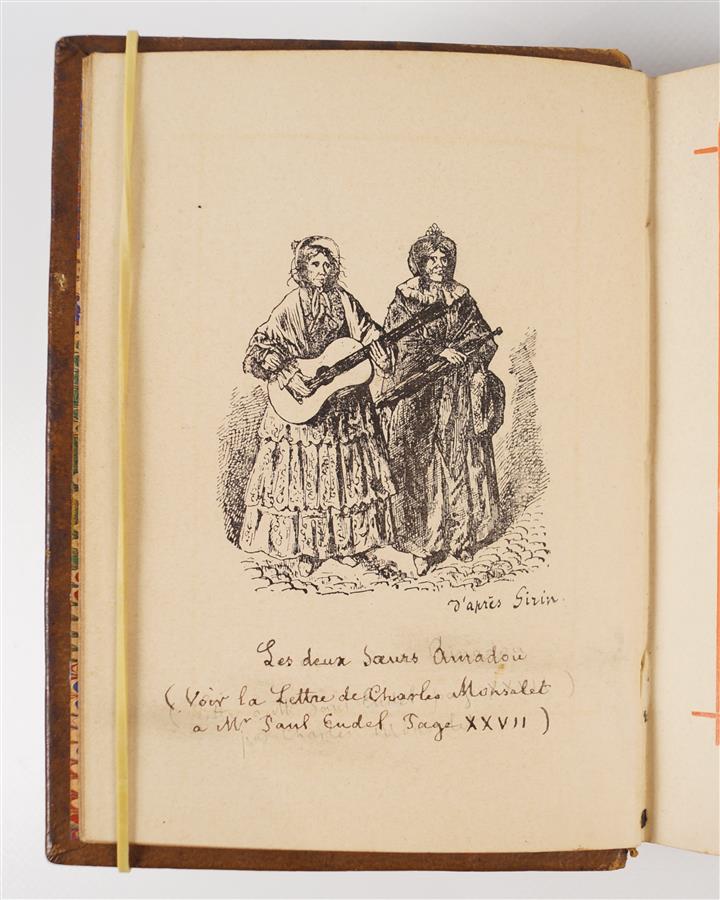 d'après Girin.
Les deux Sœurs Amadou
(Voir la Lettre de Charles Monselet
a Mr Paul Eudel Page XXVII)